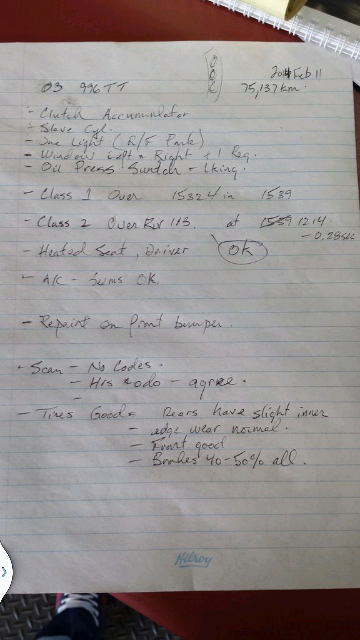 03 996TT 2014 Feb 11
75,137 km.
- Clutch Accumulator
- Slave Cyl.
- Light (R/F Fault)
- Window Left & Right + 1 Reg.
- Oil Press Switch - lking.
- Class 1 Over 15324 in 1539
- Class 2 Over Rev 113. at 1214
- 0.28sec
- Heated Seat, Driver OK
- A/C - Seems OK.
- Repaint on front bumper.
- Scan - No Codes.
- Hrs & odo - agree.
-
- Tires Good = Rears have slight inner
- edge wear normal.
- Front good
- Brakes 40-50% all.
Hilroy